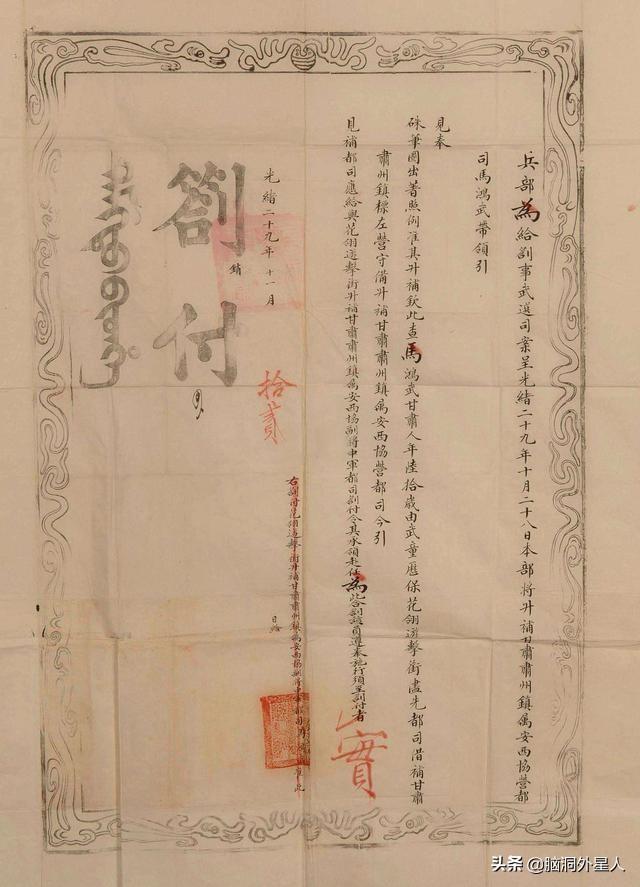 兵部為給劄事武選司案呈光緒二十九年十月二十八日本部將升補甘肅肅州鎮屬安西協營都
司馬鴻武帶領引
見奉
硃筆圈出著照例准其升補欽此查馬鴻武甘肅人年陸拾歲由武童歷保花翎遊擊銜盡先都司借補甘肅
肅州鎮標左營守備升補甘肅肅州鎮屬安西協營都司今引
見補都司應給與花翎遊擊銜升補甘肅肅州鎮屬安西協副將中軍都司劄付令其承領赴任為此合劄該員遵奉施行須至劄付者
實
右劄付花翎遊擊銜升補甘肅肅州鎮屬安西協副將中軍都司馬 准此
光緒二十九年十一月
日給
拾貳
劄付
头条 @脑洞外星人